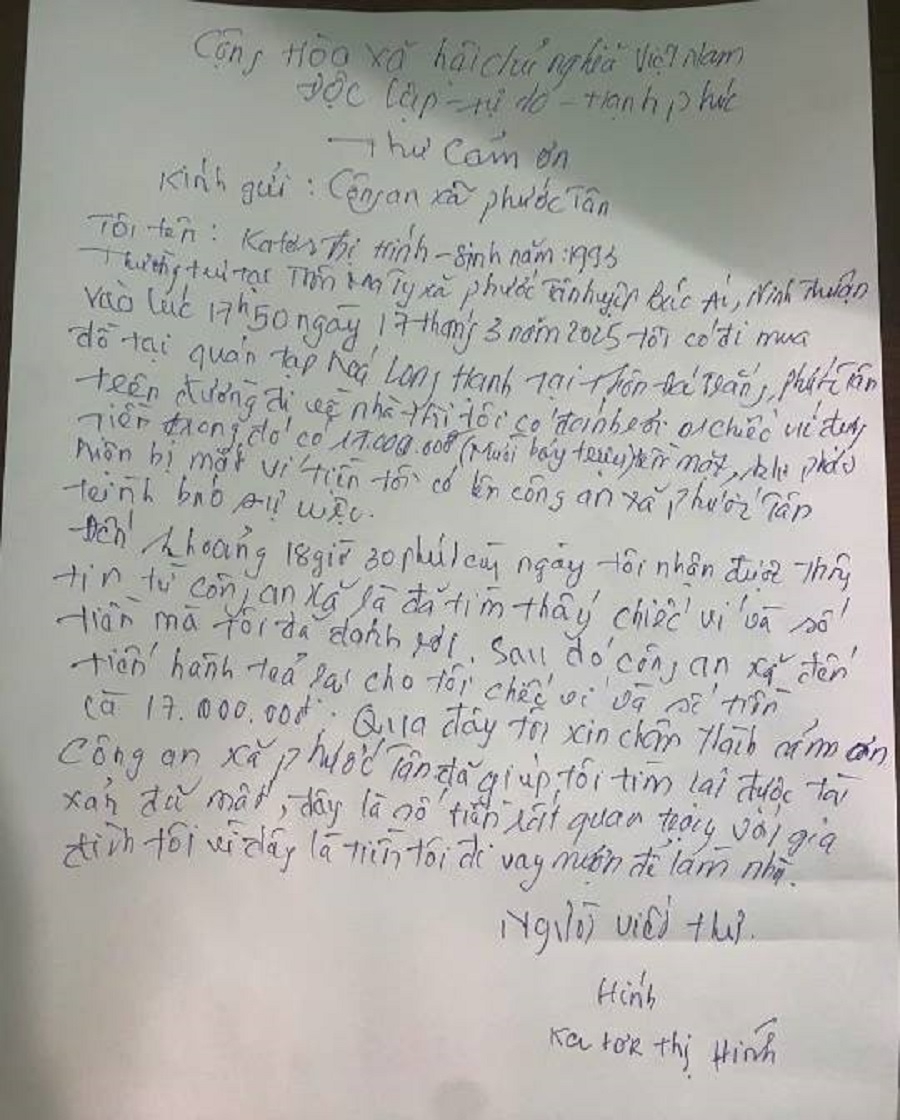 Cộng Hòa xã hội chủ nghĩa Việt Nam
Độc lập - tự do - Hạnh phúc
Thư Cảm ơn
Kính gửi: Công an xã phước Tân
Tôi tên: Katơr Thị Hính - Sinh năm: 1993
Thường trú tại Thôn Ma Ty xã phước Tân huyện Bác Ái, Ninh Thuận
vào lúc 17h50 ngày 17 tháng 3 năm 2025 tôi có đi mua
đồ tại quán tạp hoá Long Hạnh tại thôn Đá Trắng, phước Tân
trên đường đi về nhà thì tôi có đánh rơi 01 chiếc ví đựng
tiền trong đó có 17.000.000đ (Mười bảy triệu) tiền mặt, khi phát
hiện bị mất ví tiền tôi có lên công an xã phước Tân
trình báo sự việc.
Đến khoảng 18 giờ 30 phút cùng ngày tôi nhận được thông
tin từ công an xã là đã tìm thấy chiếc ví và số
tiền mà tôi đã đánh rơi. Sau đó công an xã đến
tiến hành trả lại cho tôi chếc ví và số tiền
là 17.000.00đ. Qua đây tôi xin chân thành cảm ơn
Công an xã phước Tân đã giúp tôi tìm lại được tài
xản đã mất, đây là số tiền rất quan trọng với gia
đình tôi vì đây là tiền tôi đi vay mượn để làm nhà.
Người viết thư.
Hính
Ka tơr thị Hính